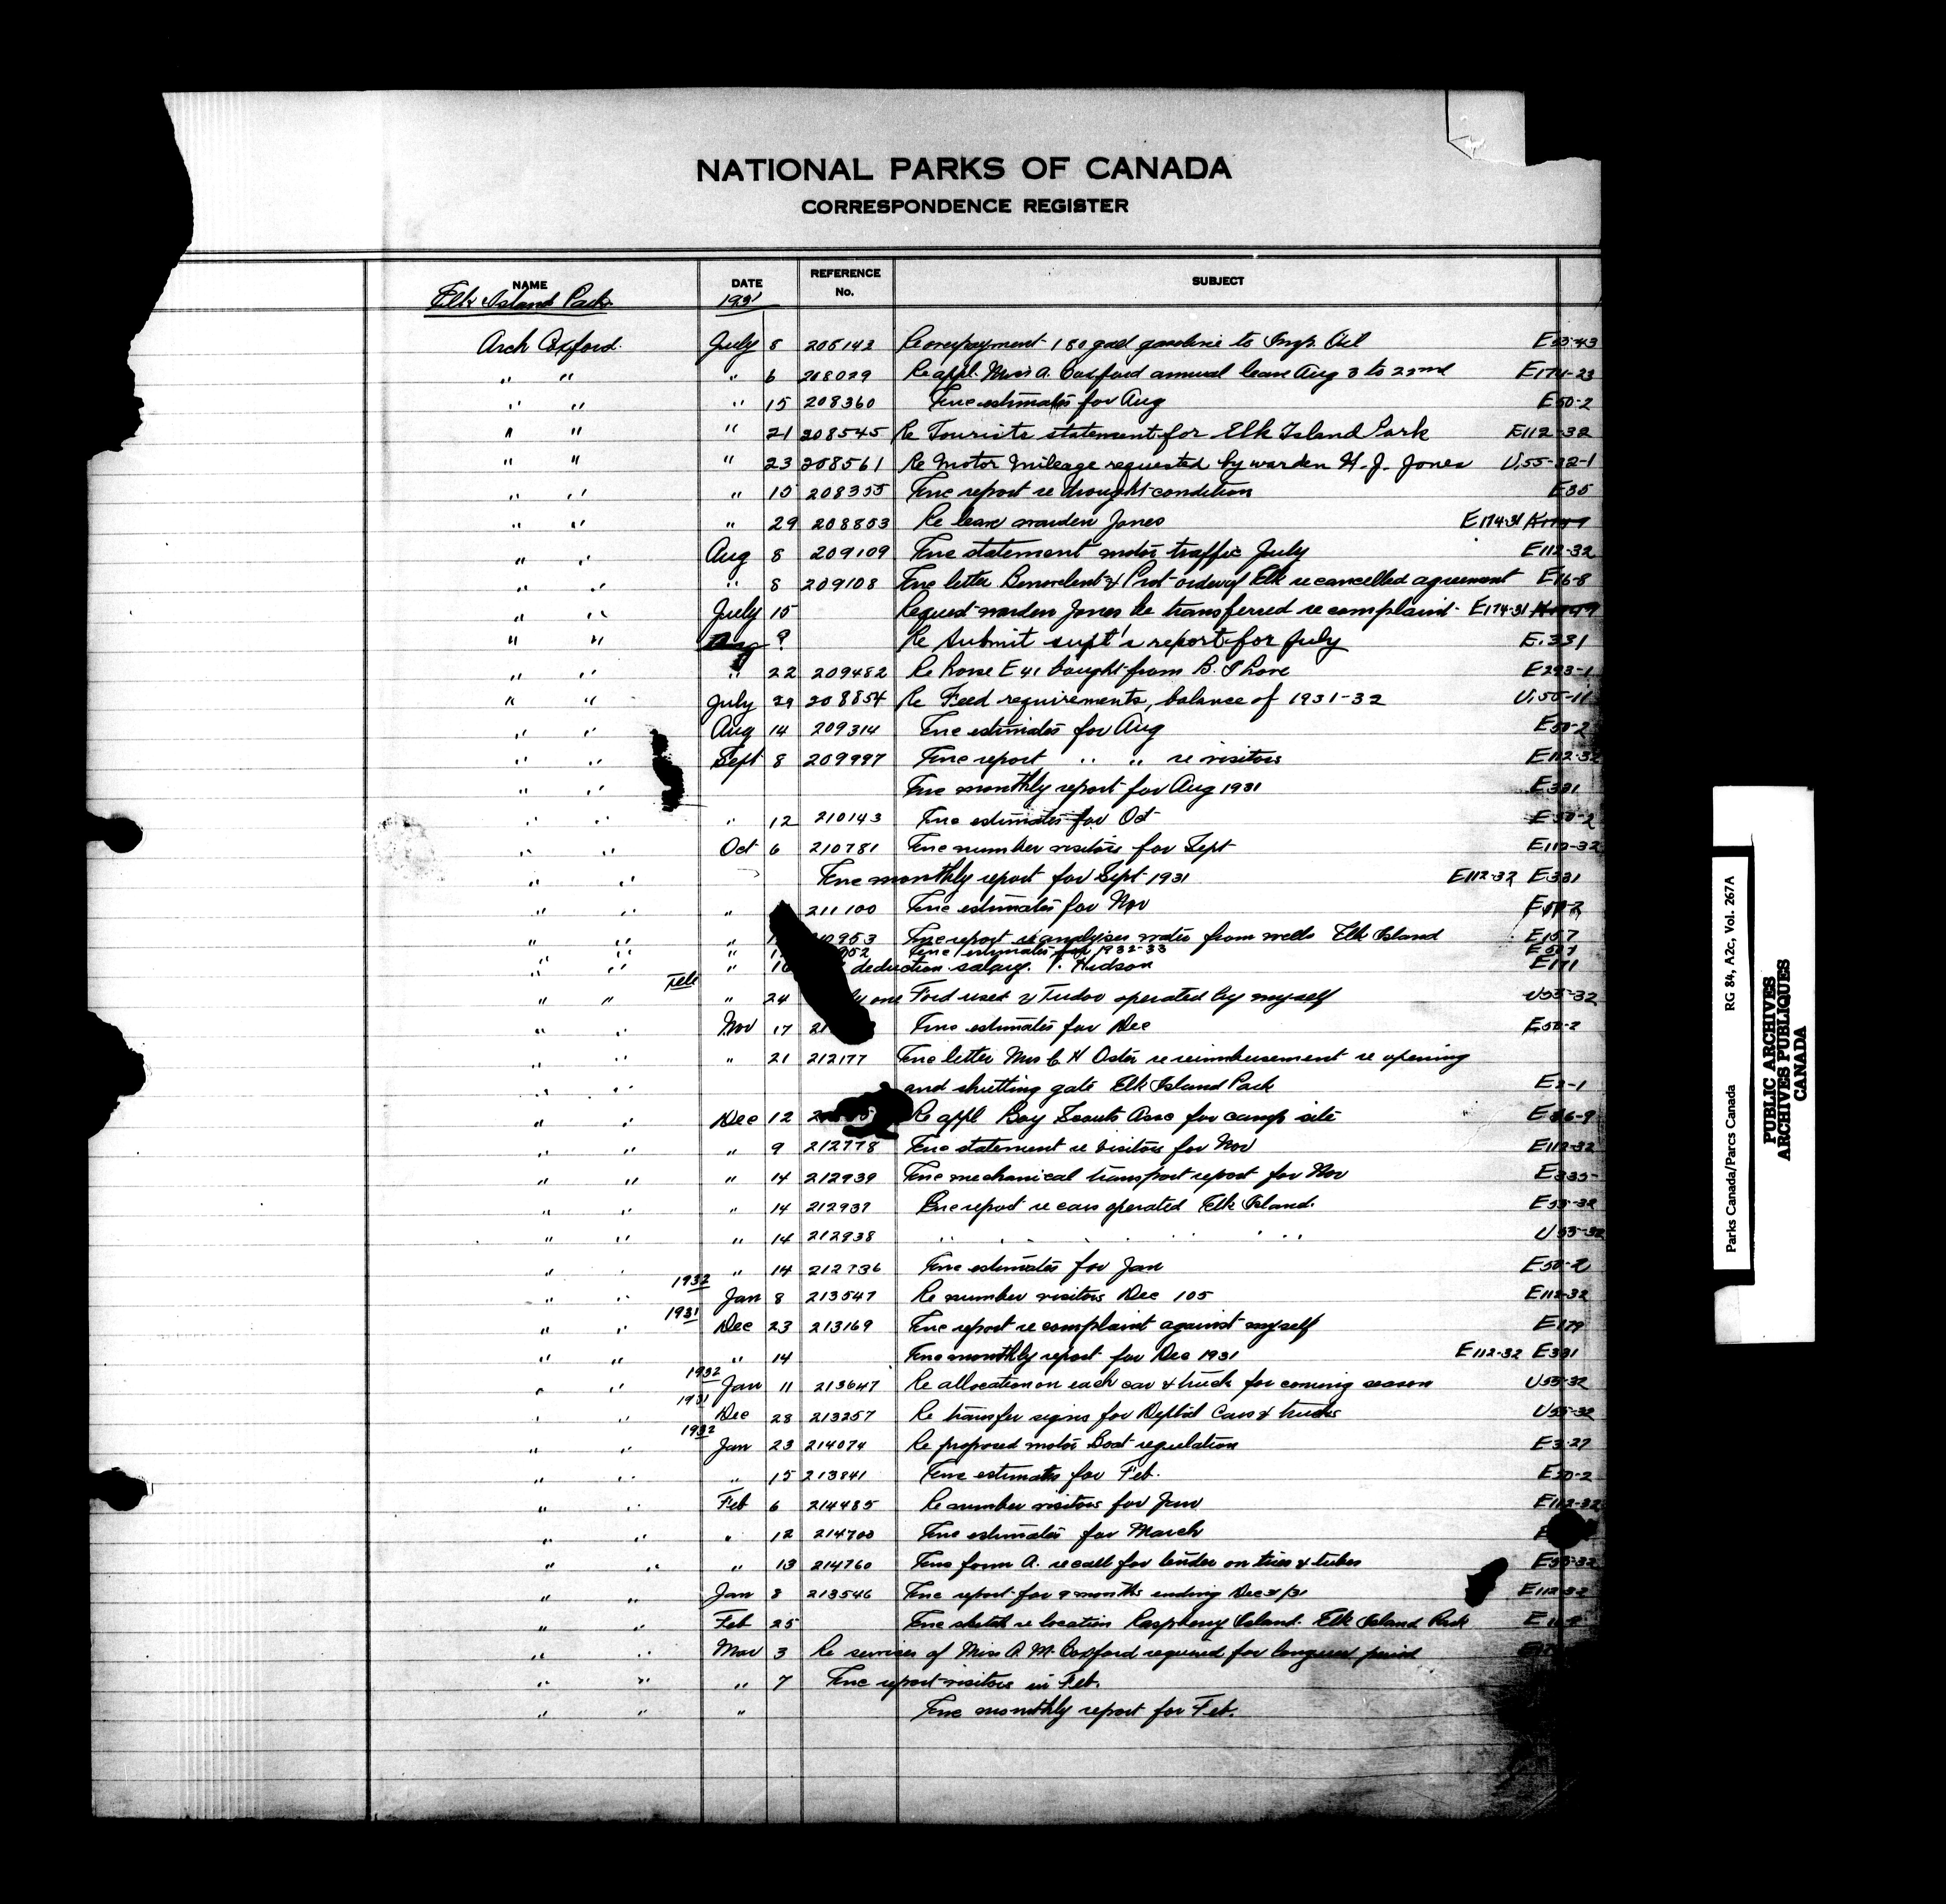 NATIONAL PARKS OF CANADA
CORRESPONDENCE REGISTER
NAME DATE REFERENCE No. SUBJECT
Elk Island Park 1931
Arch Coxford July 8 208143 Re overpayment 180 gal gasoline to Imp. Oil
" " " 6 208029 Re appl. Miss A. Coxford annual leave Aug 3 to 22nd E174-23
" " " 15 208360 Enc estimates for Aug E50-2
" " " 21 208545 Re Tourists statement for Elk Island Park E112-32
" " " 23 208561 Re Motor Mileage requested by warden H. J. Jones U.55-32-1
" " " 15 208355 Enc report re drought condition E35
" " " 29 208853 Re leave warden Jones E174-31
" " Aug 8 209109 Enc statement motor traffic July E112-32
" " " 8 209108 Enc letter Benevolent & Prot order of Elk re cancelled agreement E16-8
" " July 15 Request warden Jones be transferred re complaint E174-31
" " 9 Re Submit supt's report for July E.331
" " " 22 209482 Re horse E 41 bought from B. E293-1
" " July 29 208854 Re Feed requirements, balance of 1931-32 U.55-11
" " Aug 14 209314 Enc estimates for Aug E50-2
" " Sept 8 209997 Enc report " " re visitors E112-32
" " Enc monthly report for Aug 1931 E331
" " " 12 210143 Enc estimates for Oct E50-2
" " Oct 6 210781 Enc number visitors for Sept E112-32
" " Enc monthly report for Sept 1931 E112-32 E331
" " " 211100 Enc estimates for Nov E50-2
" " " Enc report re analyises water from wells Elk Island E157
" " " Enc estimates for 1932-33
" " " 16 deduction salary. Hudson E171
" " " 24 one Ford used & Tudor operated by myself U55-32
" " Nov 17 Enc estimates for Dec E50-2
" " " 21 212177 Enc letter Mrs C H Oster re reimbursement re opening
" " and shutting gate Elk Island Park E2-1
" " Dec 12 Re appl Boy Scouts Assc for camp site
" " " 9 212778 Enc statement re visitors for Nov E112-32
" " " 14 212939 Enc mechanical transport report for Nov E335-
" " " 14 212937 Enc report re cars operated Elk Island. E55-32
" " " 14 212938 " " " " " " " U55-32
" " " 14 212736 Enc estimates for Jan E50-2
" " 1932 Jan 8 213547 Re number visitors Dec 105 E112-32
" " 1931 Dec 23 213169 Enc report re complaint against myself E179
" " " 14 Enc monthly report for Dec 1931 E112-32 E331
" " 1932 Jan 11 213647 Re allocation on each car & truck for coming season U55-32
" " 1931 Dec 28 213257 Re transfer signs for Deptal Cars & trucks U55-32
" " 1932 Jan 23 214074 Re proposed motor Boat regulation E3-27
" " " 15 213841 Enc estimates for Feb. E50-2
" " Feb 6 214485 Re number visitors for Jan E112-32
" " " 12 214700 Enc estimates for March
" " " 13 214760 Enc form A. re call for tender on tires & tubes E55-32
" " Jan 8 213546 Enc report for 9 months ending Dec 31/31 E112-32
" " Feb 25 Enc sketch re location Raspberry Island. Elk Island Park
" " Mar 3 Re services of Miss A. M. Coxford required for longer period
" " " 7 Enc report visitors in Feb.
" " " Enc monthly report for Feb.
Parks Canada/Parcs Canada RG 84, A2c, Vol. 267A
PUBLIC ARCHIVES
ARCHIVES PUBLIQUES
CANADA